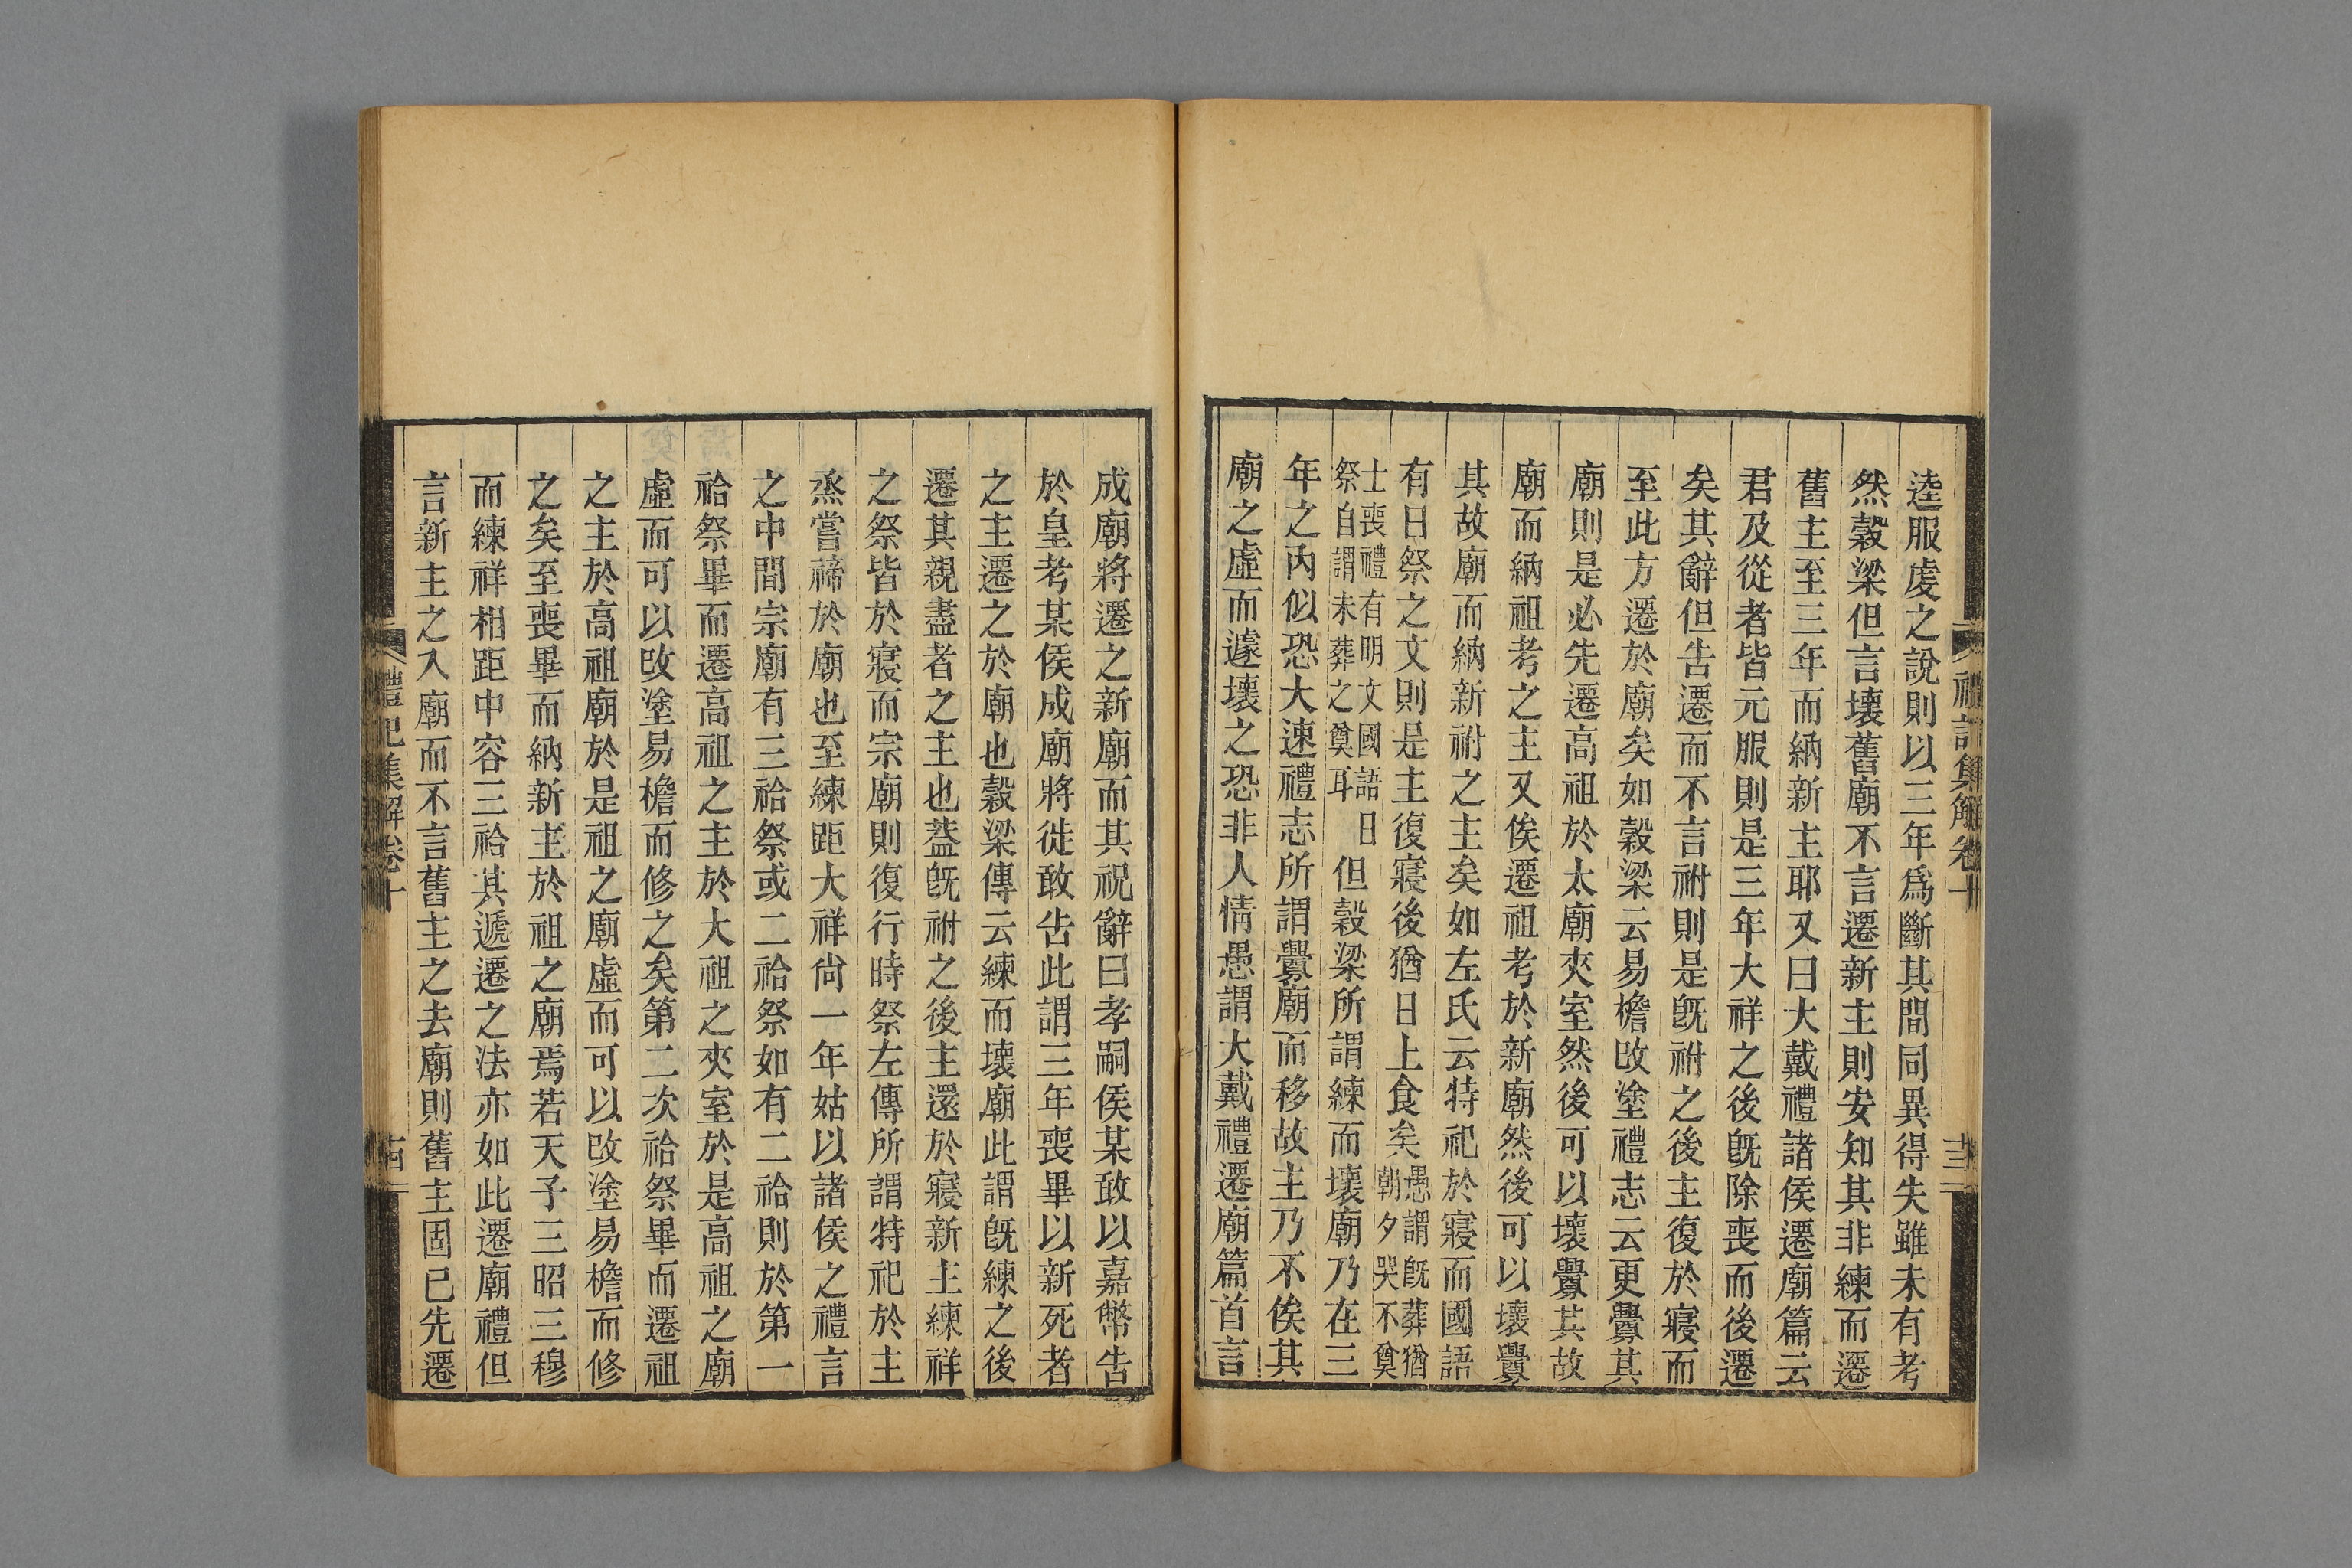 禮記集解卷十
十三
逵服虔之說則以三年爲斷其間同異得失雖未有考
然穀梁但言壞舊廟不言遷新主則安知其非練而遷
舊主至三年而納新主耶又曰大戴禮諸侯遷廟篇云
君及從者皆元服則是三年大祥之後旣除喪而後遷
矣其辭但告遷而不言祔則是旣祔之後主復於寢而
至此方遷於廟矣如穀梁云易檐改塗禮志云更釁其
廟則是必先遷高祖於太廟夾室然後可以壞釁其故
廟而納祖考之主又俟遷祖考於新廟然後可以壞釁
其故廟而納新祔之主矣如左氏云特祀於寢而國語
有日祭之文則是主復寢後猶日上食矣愚謂旣葬猶朝夕哭不奠
士喪禮有明文國語日祭自謂未葬之奠耳但穀梁所謂練而壞廟乃在三
年之內似恐大速禮志所謂釁廟而移故主乃不俟其
廟之虛而遽壞之恐非人情愚謂大戴禮遷廟篇首言
成廟將遷之新廟而其祝辭曰孝嗣侯某敢以嘉幣告
於皇考某侯成廟將徙敢告此謂三年喪畢以新死者
之主遷之於廟也穀梁傳云練而壞廟此謂旣練之後
遷其親盡者之主也葢旣祔之後主還於寢新主練祥
之祭皆於寢而宗廟則復行時祭左傳所謂特祀於主
烝嘗禘於廟也至練距大祥尙一年姑以諸侯之禮言
之中間宗廟有三祫祭或二祫祭如有二祫則於第一
祫祭畢而遷高祖之主於大祖之夾室於是高祖之廟
虛而可以改塗易檐而修之矣第二次祫祭畢而遷祖
之主於高祖廟於是祖之廟虛而可以改塗易檐而修
之矣至喪畢而納新主於祖之廟焉若天子三昭三穆
而練祥相距中容三祫其遞遷之法亦如此遷廟禮但
言新主之入廟而不言舊主之去廟則舊主固已先遷
禮記集解卷十
十四